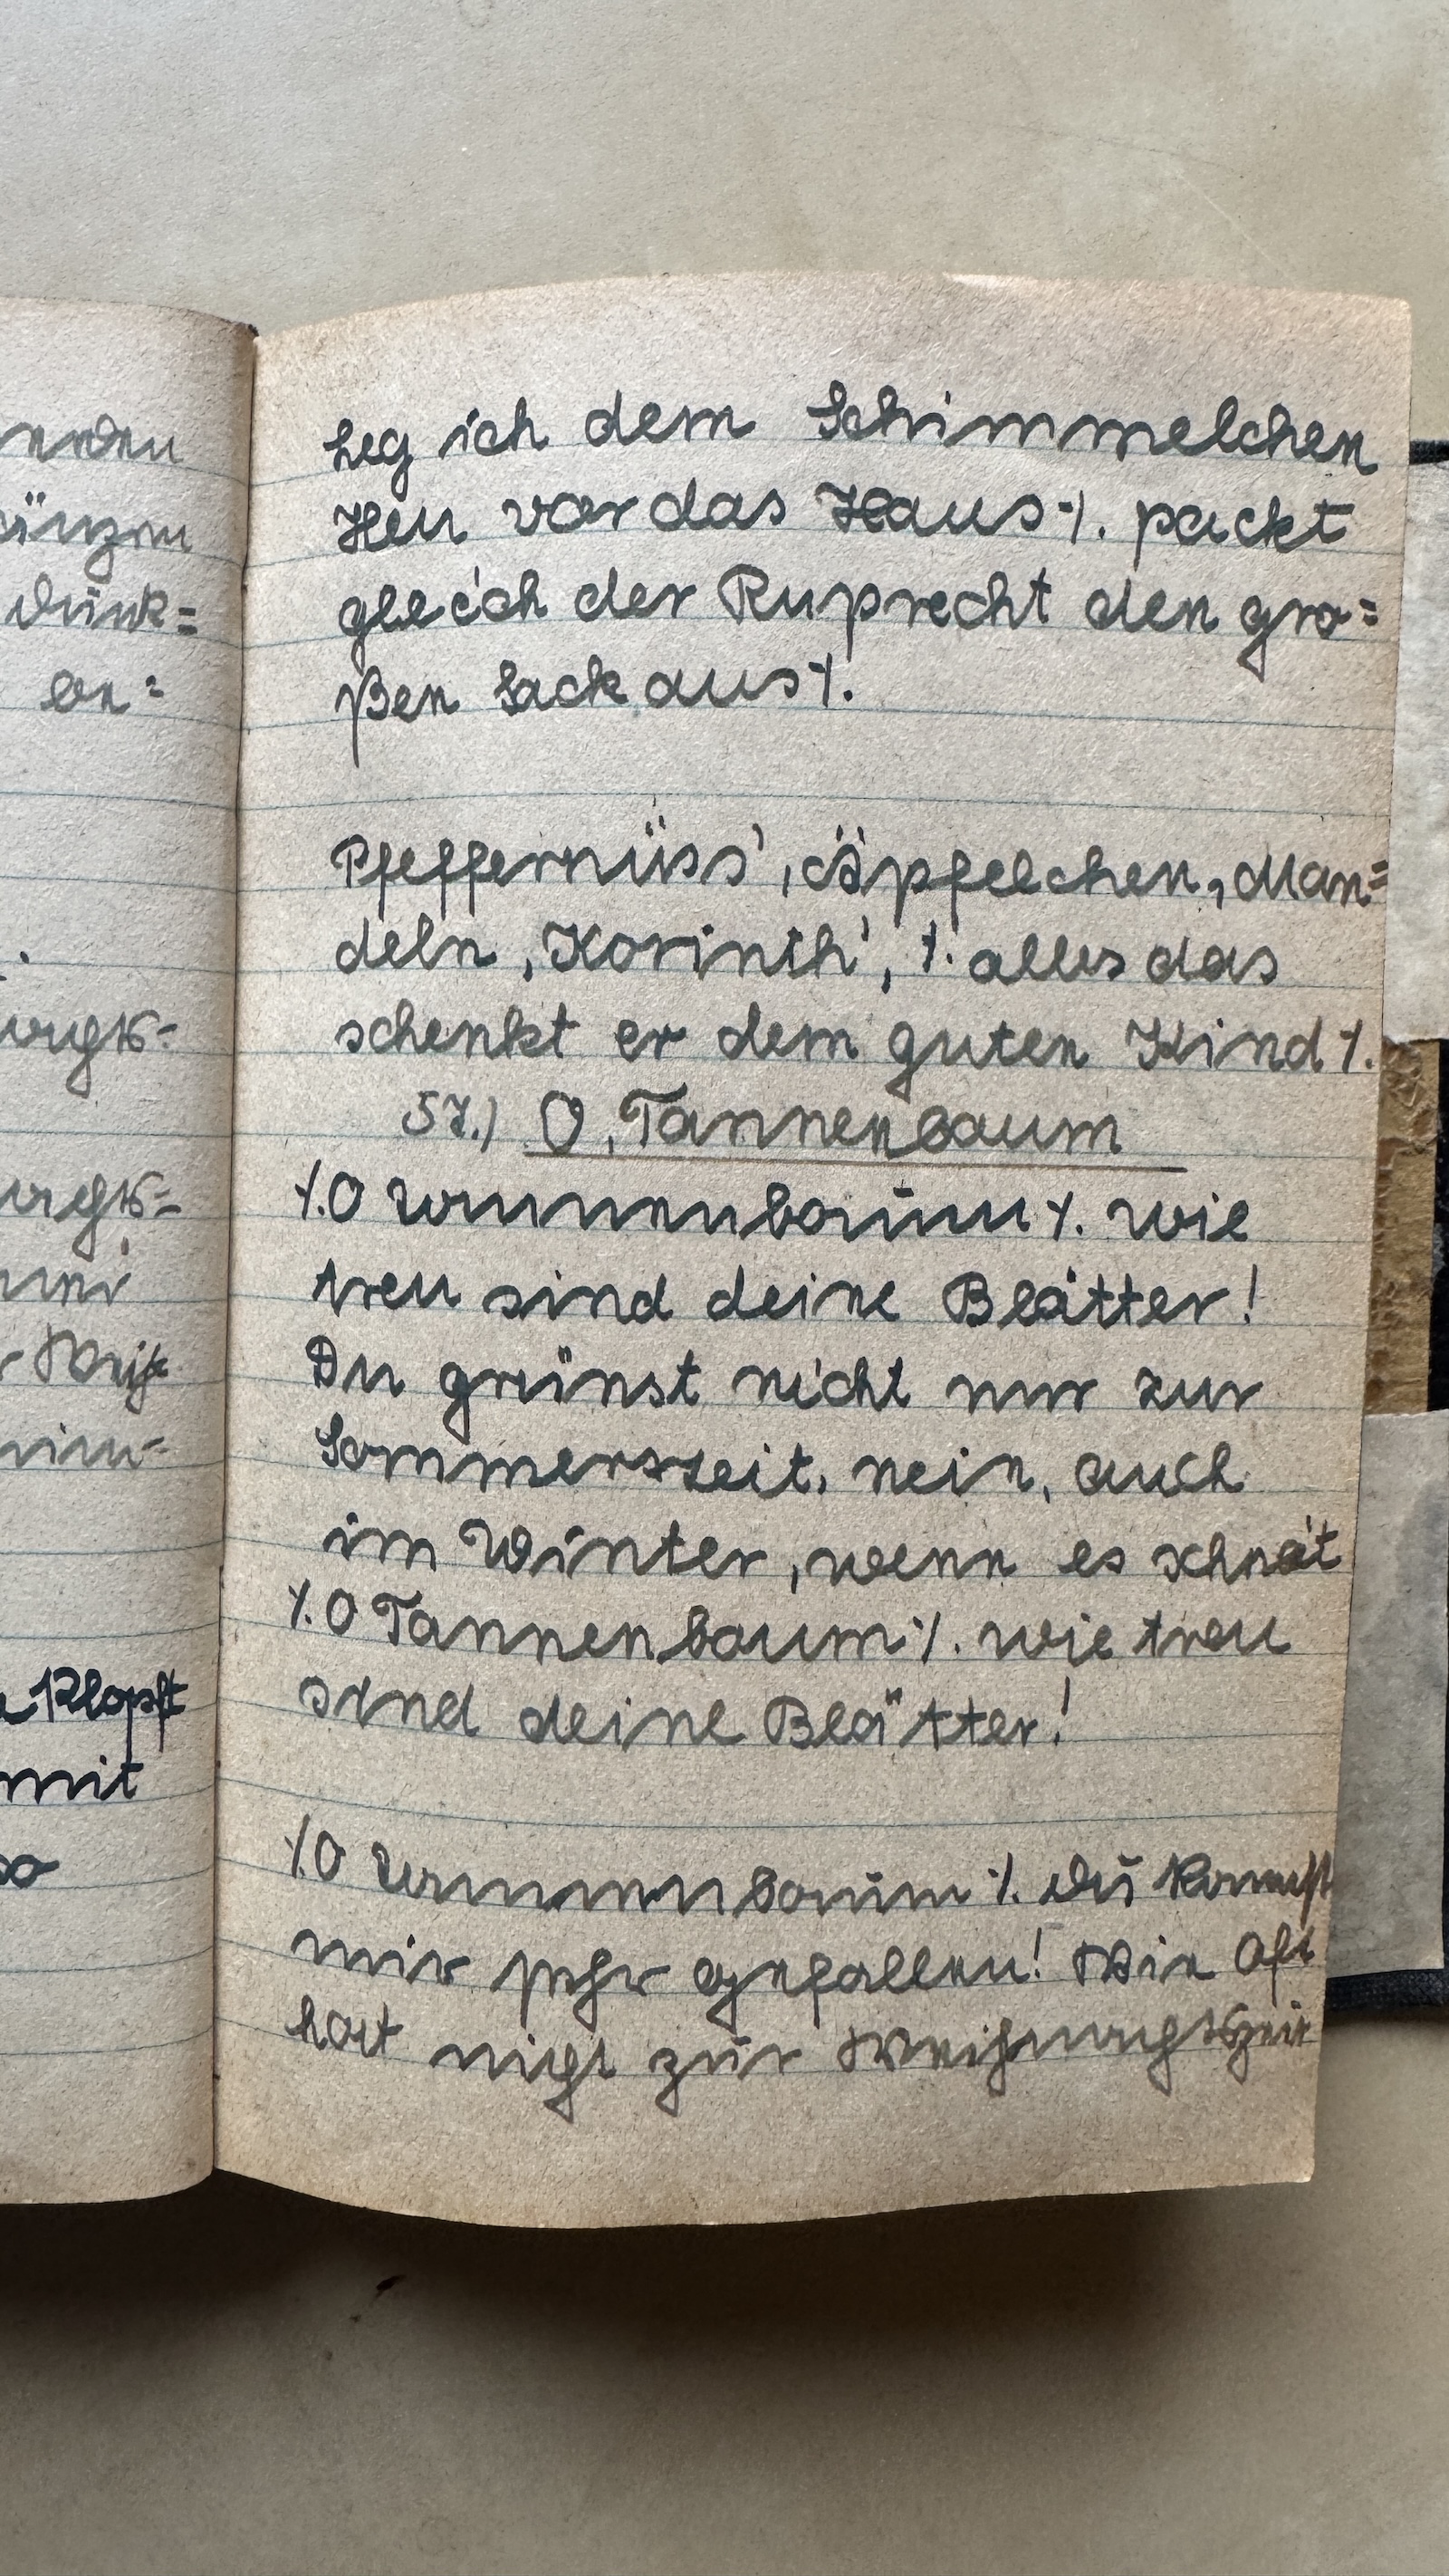 Leg ich dem Schimmelchen
Heu vor das Haus ·/. packt
gleich der Ruprecht den gro=
ßen Sack aus ·/.
Pfeffernüss', Äpfelchen, Man=
deln, Korinth', ·/. alles das
schenkt er dem guten Kind ·/.
57.) O, Tannenbaum
·/. O Tannenbaum ·/. wie
treu sind deine Blätter!
Du grünst nicht nur zur
Sommerszeit, nein, auch
im Winter, wenn es schneit
·/. O Tannenbaum ·/. wie treu
sind deine Blätter!
·/. O Tannenbaum ·/. du kannst
mir sehr gefallen! Wie oft
hat nicht zur Weihnachtszeit
Klopft
mit
so